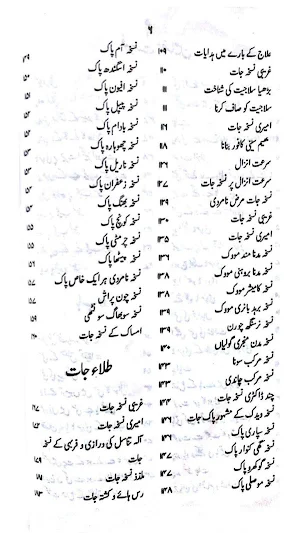 ۶
علاج کے بارے میں ہدایات ۱۰۹
غریبی نسخہ جات ۱۱۰
بڑھیا سلاجیت کی شناخت ۱۱۱
سلاجیت کو صاف کرنا ۱۱۱
امیری نسخہ جات
بھیم سینی کافور بنانا ۱۱۸
سرعت انزال
سرعت انزال پر نسخہ جات ۱۲۷
نسخہ جات مرض نامردی ۱۲۹
غریبی نسخہ جات ۱۳۰
امیری نسخہ جات ۱۳۵
نسخہ مدنا نند مودک ۱۳۶
نسخہ مدنا مودک ۱۳۸
نسخہ کامیشر مودک ۱۳۸
نسخہ برہد بانری مودک ۱۳۹
نسخہ نرسنگھ چورن ۱۳۹
نسخہ مدن منجری گولیاں ۱۴۰
نسخہ مرکب سونا ۱۴۳
نسخہ مرکب چاندی ۱۴۳
چند ڈاکٹری نسخہ جات ۱۴۴
نسخہ ویدک کے مشہور پاک جات ۱۴۶
نسخہ سپاری پاک ۱۴۶
نسخہ گھی کنوار پاک ۱۴۷
نسخہ گوکھرو پاک ۱۴۷
نسخہ موصلی پاک ۱۴۸
نسخہ آم پاک ۱۴۹
نسخہ اسگندھ پاک ۱۵۰
نسخہ افیون پاک ۱۵۱
نسخہ پیپل پاک
نسخہ بادام پاک
نسخہ چھوہارہ پاک
نسخہ ناریل پاک
نسخہ زعفران پاک
نسخہ بھنگ پاک
نسخہ کونچ پاک ۱۵۵
نسخہ پاک ۱۵۵
نسخہ پیٹھا پاک ۱۵۶
نسخہ نامردی ہر ایک خاص پاک ۱۵۷
نسخہ چون پراش ۱۵۷
نسخہ سوبھاگ سونٹھی ۱۵۹
امساک کے نسخہ جات
طلاء جات
غریبی نسخہ جات
امیری نسخہ جات
آلہ تناسل کی درازی و فربہی کے نسخہ
جات ۱۷۹
ملذذ نسخہ جات ۱۸۱
رس ہائے و کشتہ جات ۱۸۳